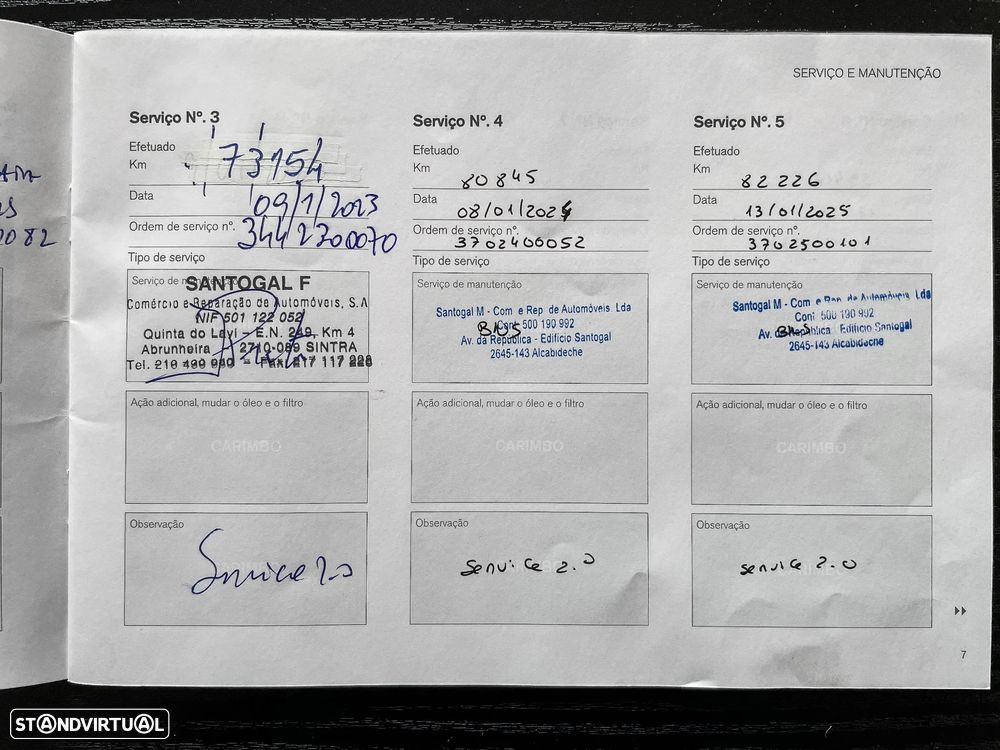 SERVIÇO E MANUTENÇÃO
Serviço Nº. 3
Efetuado
Km 73154
Data 09/1/2023
Ordem de serviço nº. 3442300070
Tipo de serviço
Serviço de manutenção
SANTOGAL F
Comércio e Reparação de Automóveis, S.A
NIF 501 122 052
Quinta do Lavi - E.N. 249, Km 4
Abrunheira 2710-089 SINTRA
Tel. 219 - Fax. 217 117 228
Ação adicional, mudar o óleo e o filtro
CARIMBO
Observação
Service 2.0
Serviço Nº. 4
Efetuado
Km 80845
Data 08/01/2024
Ordem de serviço nº. 3702400052
Tipo de serviço
Serviço de manutenção
Santogal M - Com e Rep de Automóveis Lda
Cont 500 190 992
Av. da República - Edifício Santogal
2645-143 Alcabideche
Ação adicional, mudar o óleo e o filtro
CARIMBO
Observação
Service 2.0
Serviço Nº. 5
Efetuado
Km 82226
Data 13/01/2025
Ordem de serviço nº. 3702500101
Tipo de serviço
Serviço de manutenção
Santogal M - Com e Rep de Automóveis Lda
Cont 500 190 992
Av. da República - Edifício Santogal
2645-143 Alcabideche
Ação adicional, mudar o óleo e o filtro
CARIMBO
Observação
service 2.0
7
2082
STANDVIRTUAL